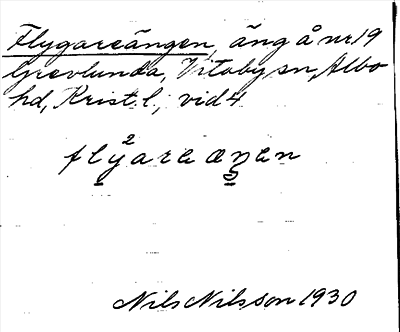 Flygareängen, äng å nr 19
Grevlunda, Vitaby sn, Albo
hd, Krist. l., vid 4.
fly²arɐ æŋɐn
Nils Nilsson 1930